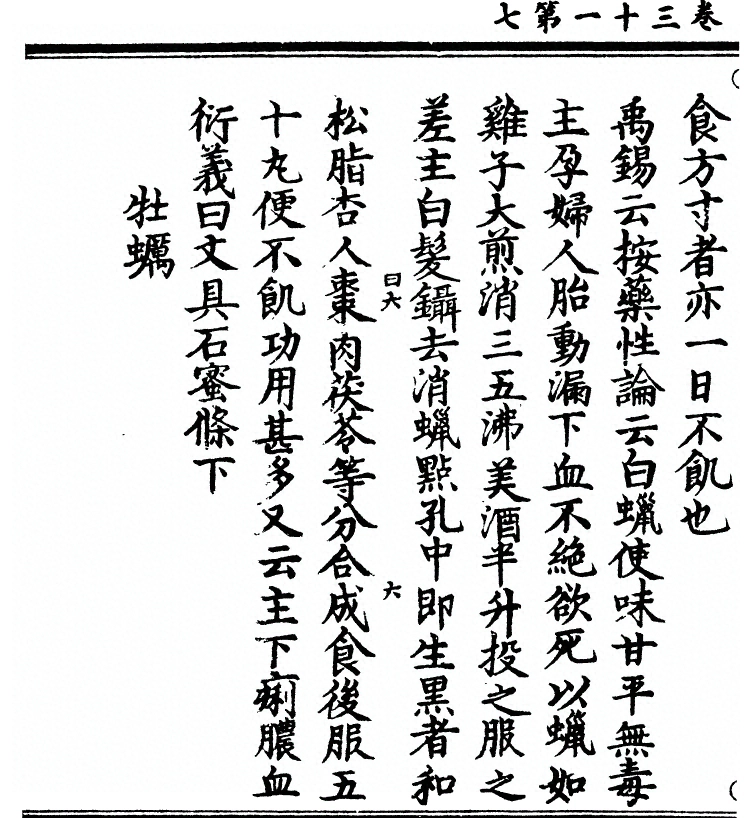 卷三十一第七
食方寸者亦一日不飢也
禹錫云按藥性論云白蠟使味甘平無毒
主孕婦人胎動漏下血不絶欲死以蠟如
雞子大煎消三五沸美酒半升投之服之
差主白髮鑷去消蠟點孔中即生黑者和
曰六
六
松脂杏人棗肉茯苓等分合成食後服五
十丸便不飢功用甚多又云主下痢膿血
衍義曰文具石蜜條下
牡蠣